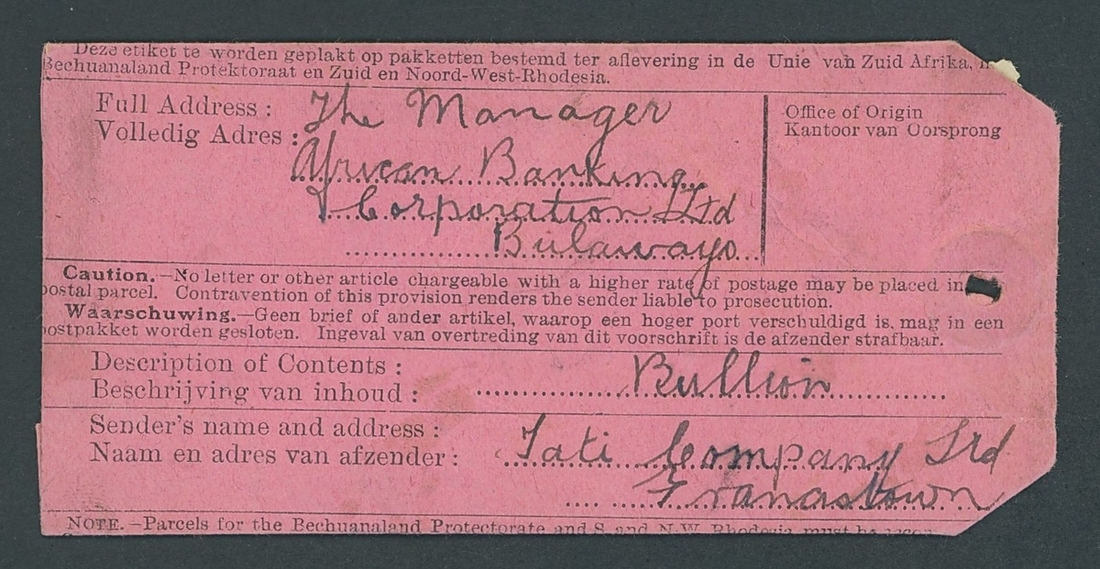 Deze etiket te worden geplakt op pakketten bestemd ter aflevering in de Unie van Zuid Afrika,
Bechuanaland Protektoraat en Zuid en Noord-West-Rhodesia.
Full Address : The Manager
Volledig Adres : African Banking
Corporation Ltd
Bulawayo
Office of Origin
Kantoor van Oorsprong
Caution.—No letter or other article chargeable with a higher rate of postage may be placed in
postal parcel. Contravention of this provision renders the sender liable to prosecution.
Waarschuwing.—Geen brief of ander artikel, waarop een hoger port verschuldigd is, mag in een
postpakket worden gesloten. Ingeval van overtreding van dit voorschrift is de afzender strafbaar.
Description of Contents : Bullion
Beschrijving van inhoud :
Sender's name and address :
Naam en adres van afzender : Tati Company Ltd
Francistown
NOTE.—Parcels for the Bechuanaland Protectorate and S. and N.W. Rhodesia must be